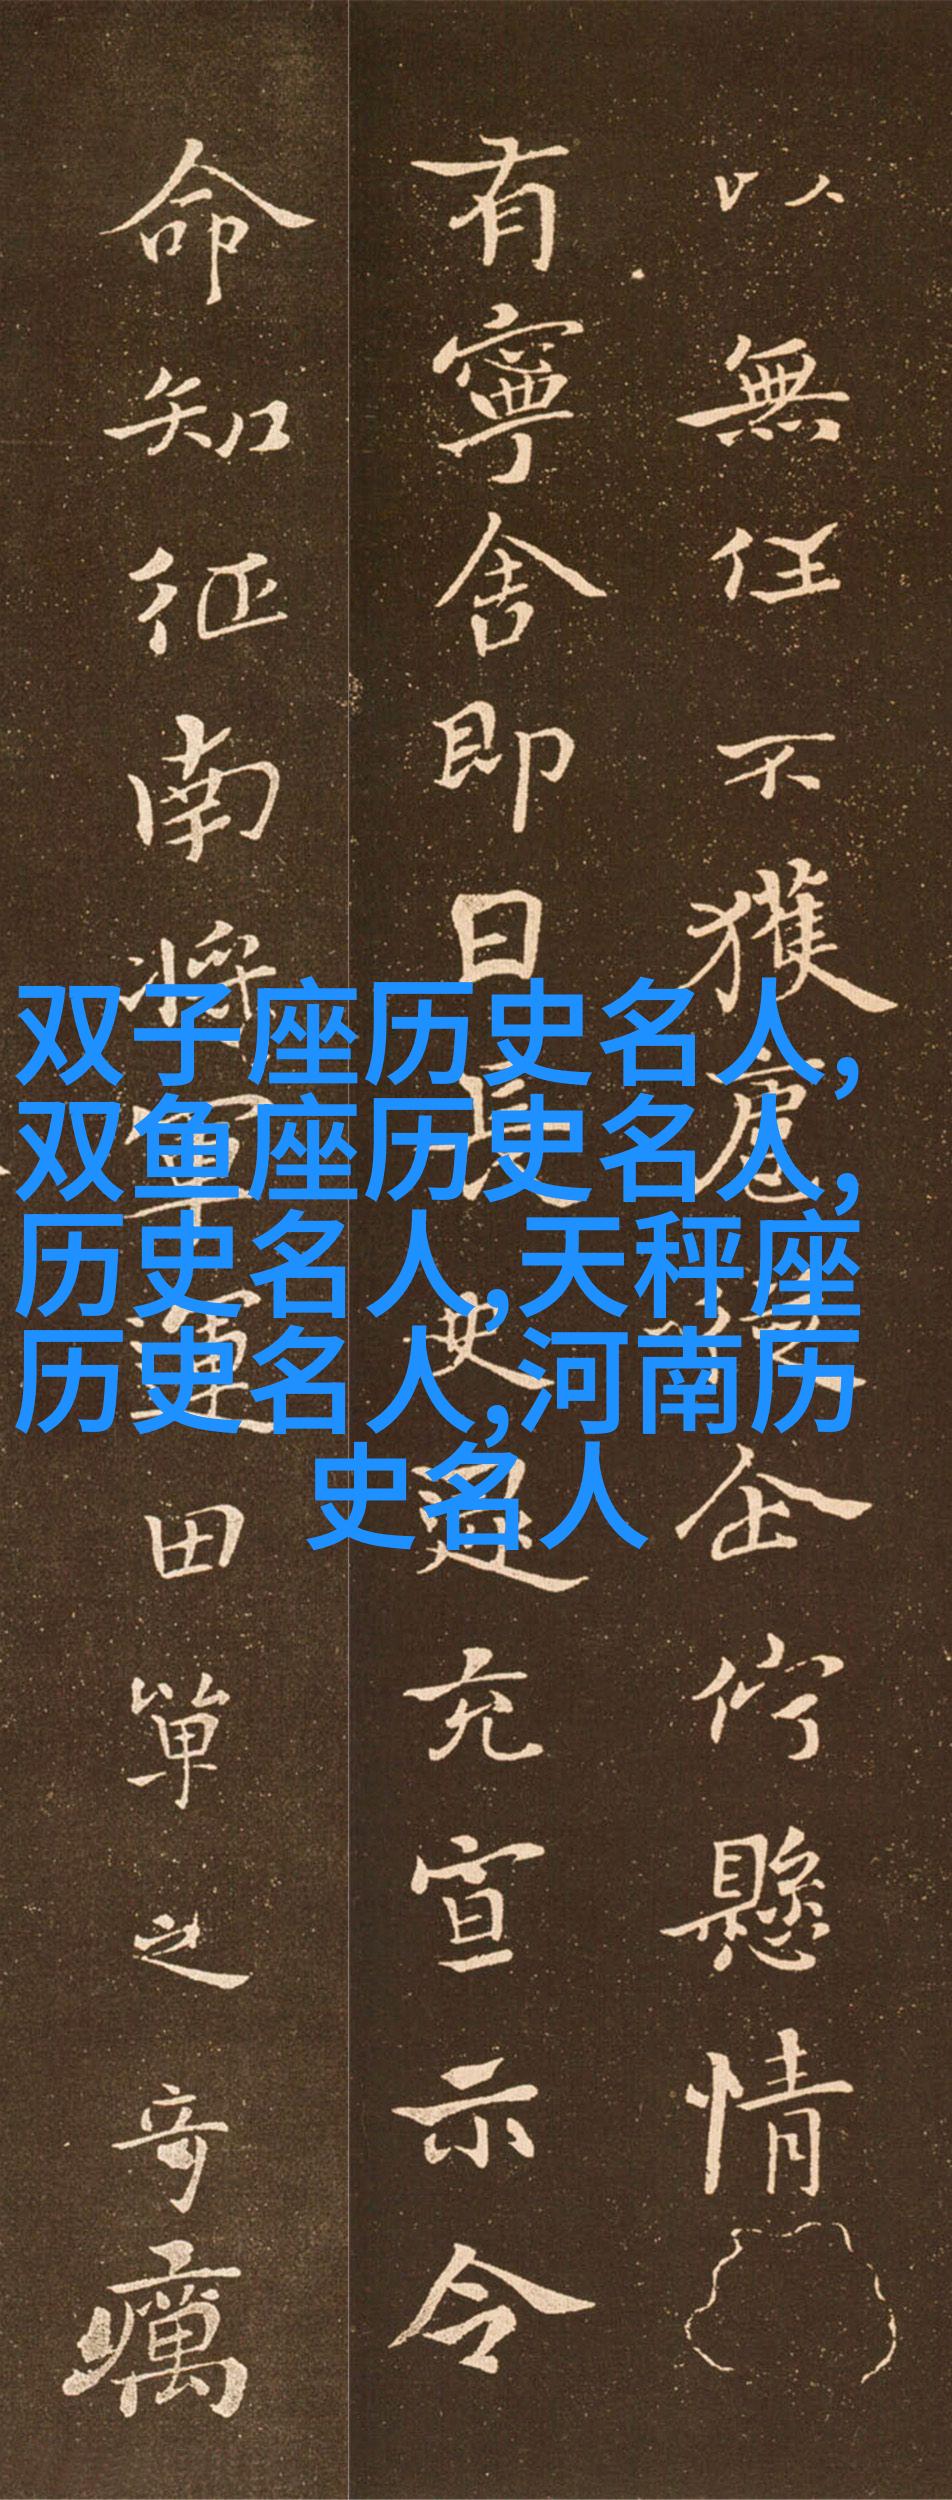 以無任不獲扈從企佇懸情
有寧舍即日長史逯充宣示令
命知征南將軍運田單之奇厲
双子座历史名人,
双鱼座历史名人,
历史名人,天秤座
历史名人,河南历
史名人